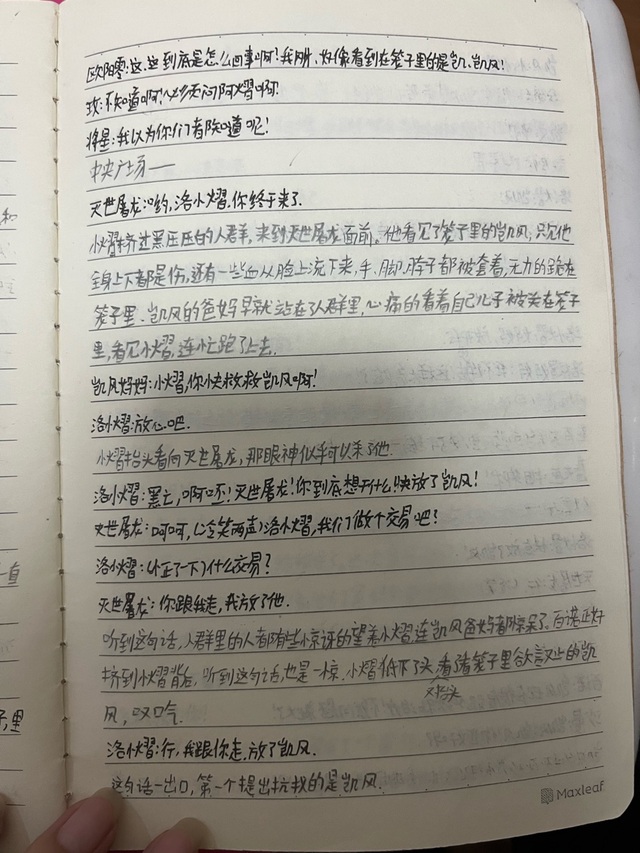 欧阳零:这、这到底是怎么回事啊!我刚、好像看到在笼子里的是凯、凯风!
玫:不知道啊!必须去问阿熠啊!
将星:我以为你们都知道呢!
中央广场——
灭世屠龙:哟,洛小熠.你终于来了.
小熠挤过黑压压的人群,来到灭世屠龙面前。他看见了笼子里的凯风,只见他
全身上下都是伤,还有一些血从脸上流下来,手、脚、脖子都被套着,无力的跪在
笼子里、凯风的爸妈早就站在了人群里,心痛的看着自己儿子被关在笼子
里,看见小熠,连忙跑了上去.
凯风妈妈:小熠,你快救救凯风啊!
洛小熠:放心吧.
小熠抬头看向灭世屠龙,那眼神似乎可以杀了他.
洛小熠:黑亡,啊呸!灭世屠龙!你到底想干什么!快放了凯风!
灭世屠龙:呵呵,(冷笑两声)洛小熠,我们做个交易吧?
洛小熠:(怔了一下)什么交易?
灭世屠龙:你跟我走,我放了他.
听到这句话,人群里的人都有些惊讶的望着小熠连凯风爸妈都惊呆了。百诺正好
挤到小熠背后,听到这句话,也是一惊.小熠低下了头,看着笼子里奄奄一息的凯
风,叹口气.
洛小熠:行,我跟你走,放了凯风.
这句话一出口,第一个提出抗拒的是凯风.
Maxleaf